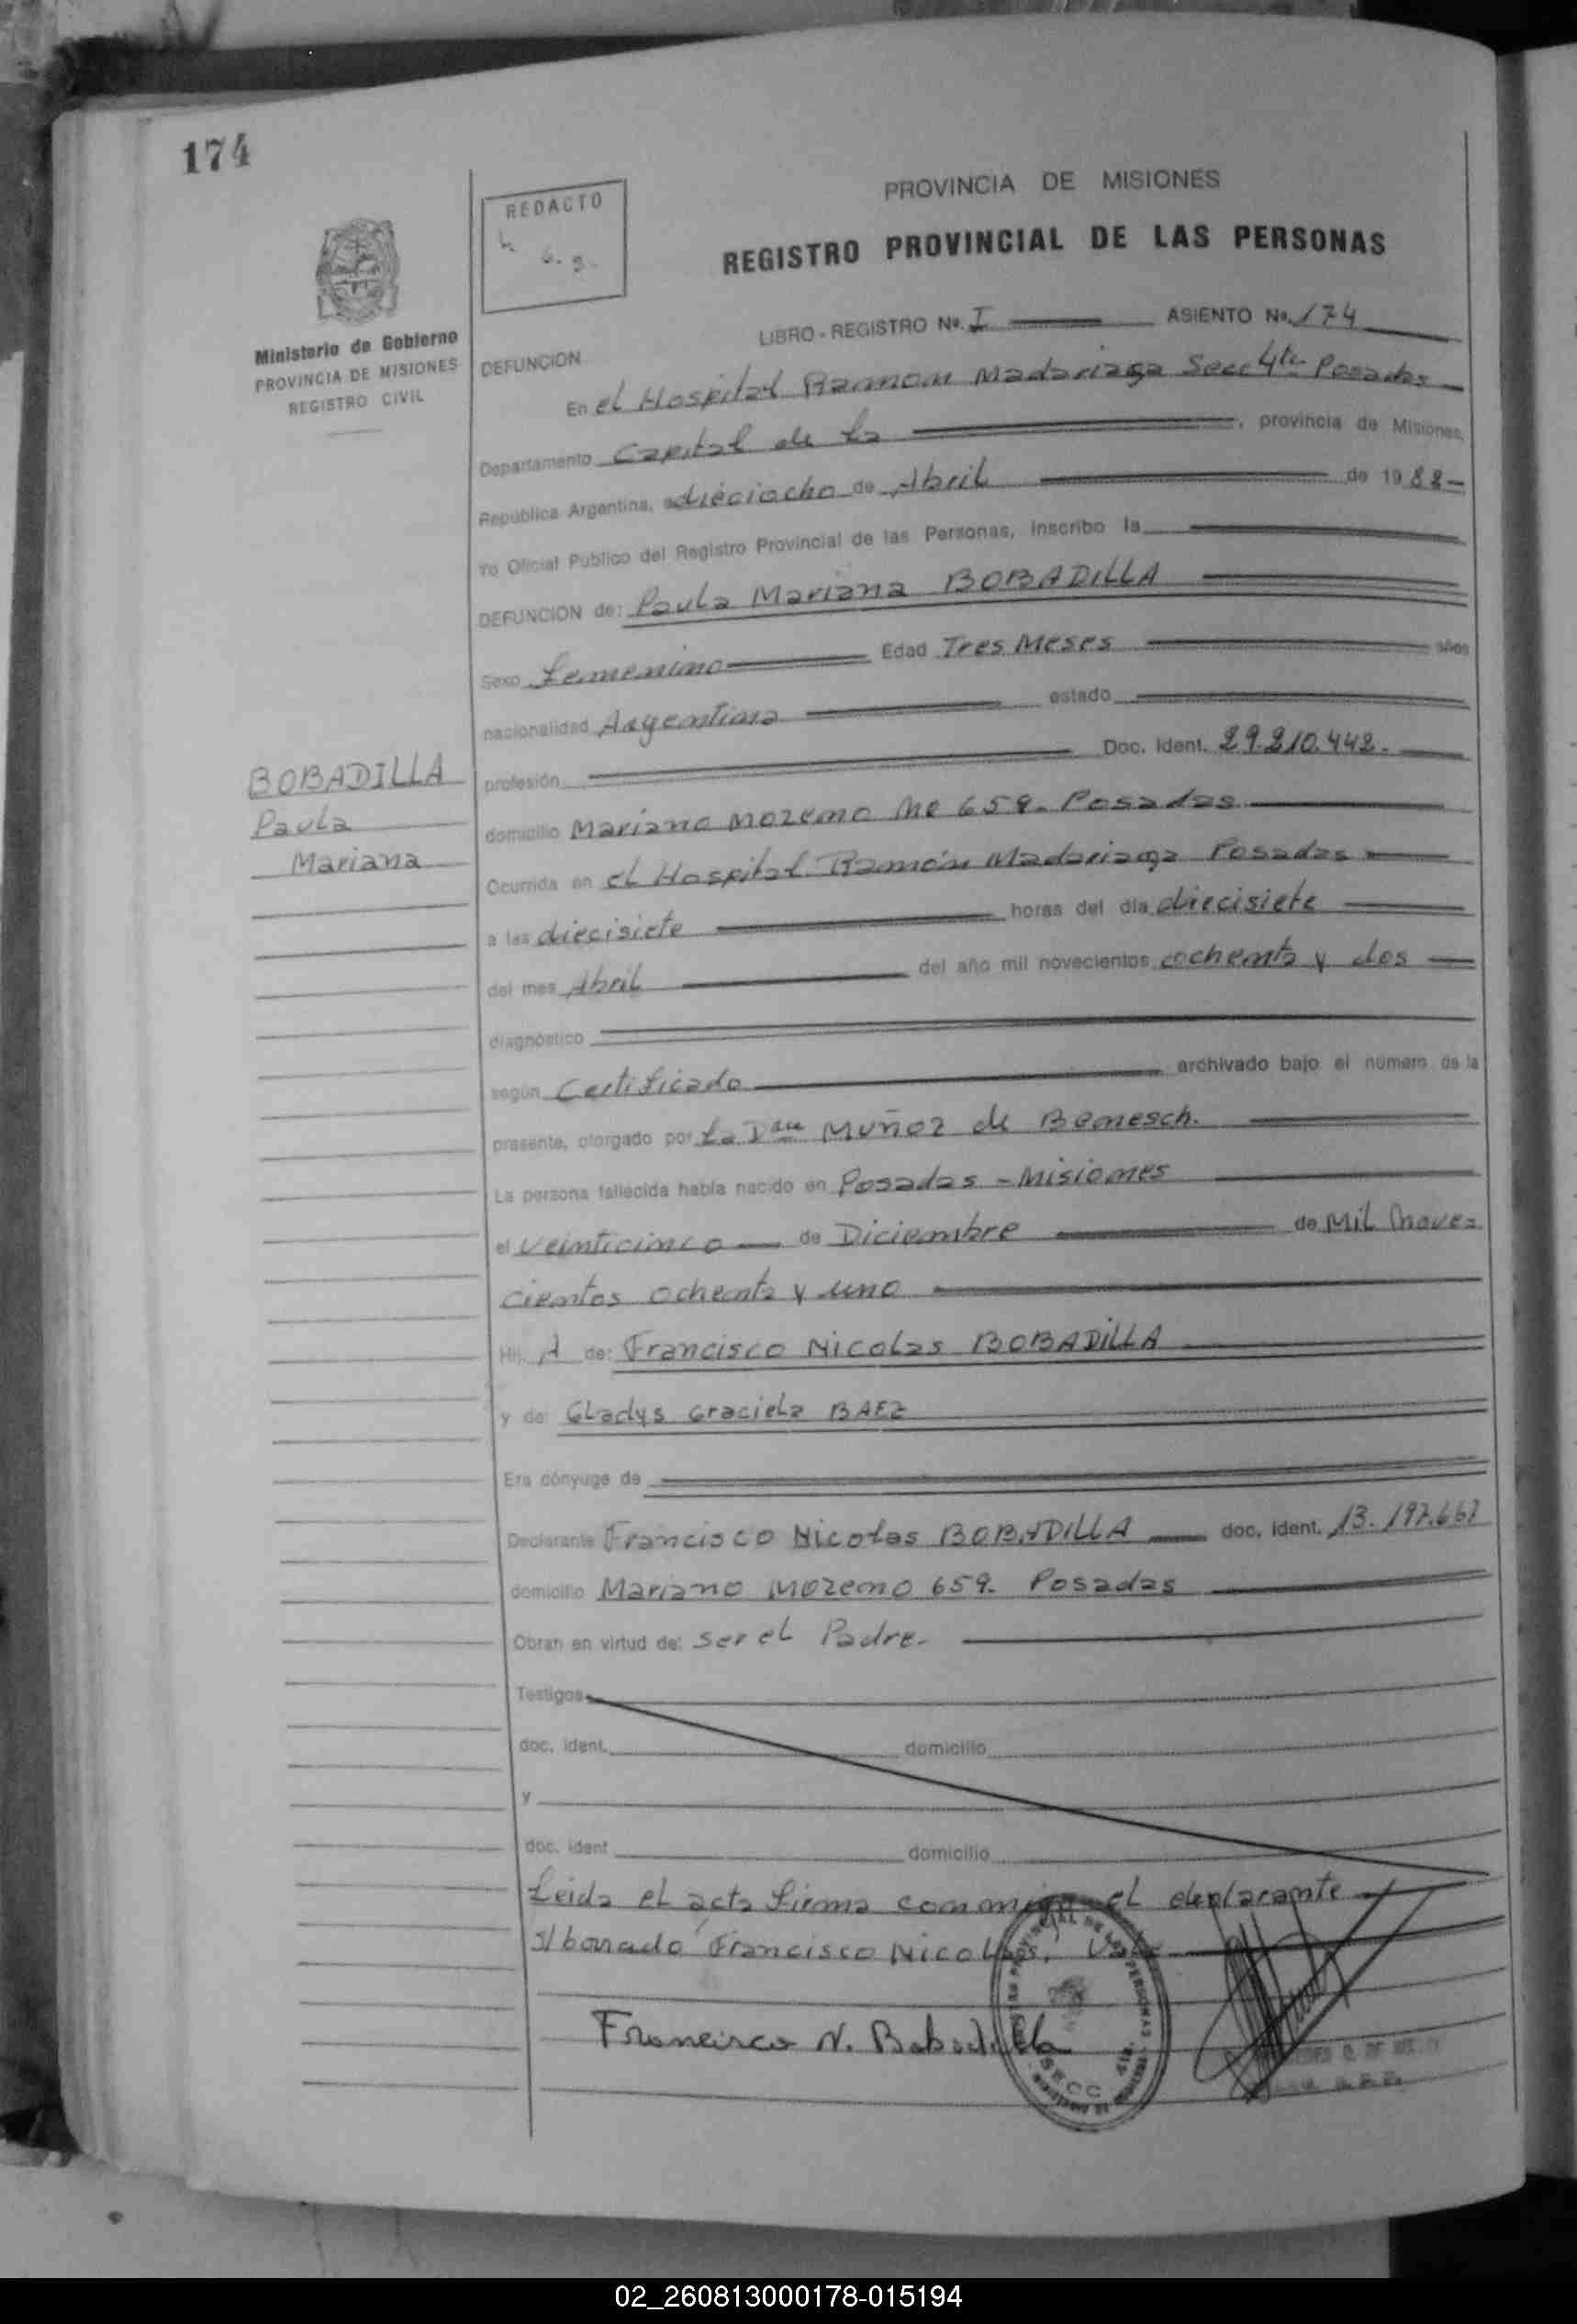 174
REDACTO
PROVINCIA DE MISIONES
REGISTRO PROVINCIAL DE LAS PERSONAS
Ministerio de Gobierno
PROVINCIA DE MISIONES
REGISTRO CIVIL
LIBRO - REGISTRO No. I ASIENTO No. 174
DEFUNCION
En el Hospital Ramón Madariaga Secc 4ta Posadas
Departamento Capital de La, provincia de Misiones,
República Argentina, a dieciocho de Abril de 1982
Yo Oficial Público del Registro Provincial de las Personas, inscribo la
DEFUNCION de: Paula Mariana BOBADILLA
Sexo femenino Edad Tres Meses años
nacionalidad Argentina estado
BOBADILLA
Paula
Mariana
profesión Doc. Ident. 29.210.442.
domicilio Mariano Moreno No 659. Posadas
Ocurrida en el Hospital Ramón Madariaga Posadas
a las diecisiete horas del día diecisiete
del mes Abril del año mil novecientos ochenta y dos
diagnóstico
según Certificado archivado bajo el número de la
presente, otorgado por La Dra Muñoz de Benesch.
La persona fallecida había nacido en Posadas - Misiones
el veinticinco de Diciembre de Mil Nove=
cientos ochenta y uno
Hij A de: Francisco Nicolas BOBADILLA
y de: Gladys Graciela BAEZ
Era cónyuge de
Declarante Francisco Nicolas BOBADILLA doc. ident. 13.197.667
domicilio Mariano Moreno 659. Posadas
Obran en virtud de: ser el Padre.
Testigos
doc. ident. domicilio
y
doc. ident domicilio
Leida el acta firma conmigo el declarante
s/borrado Francisco Nicolas, Vale
Francisco N. Bobadilla
SECC
02_260813000178-015194